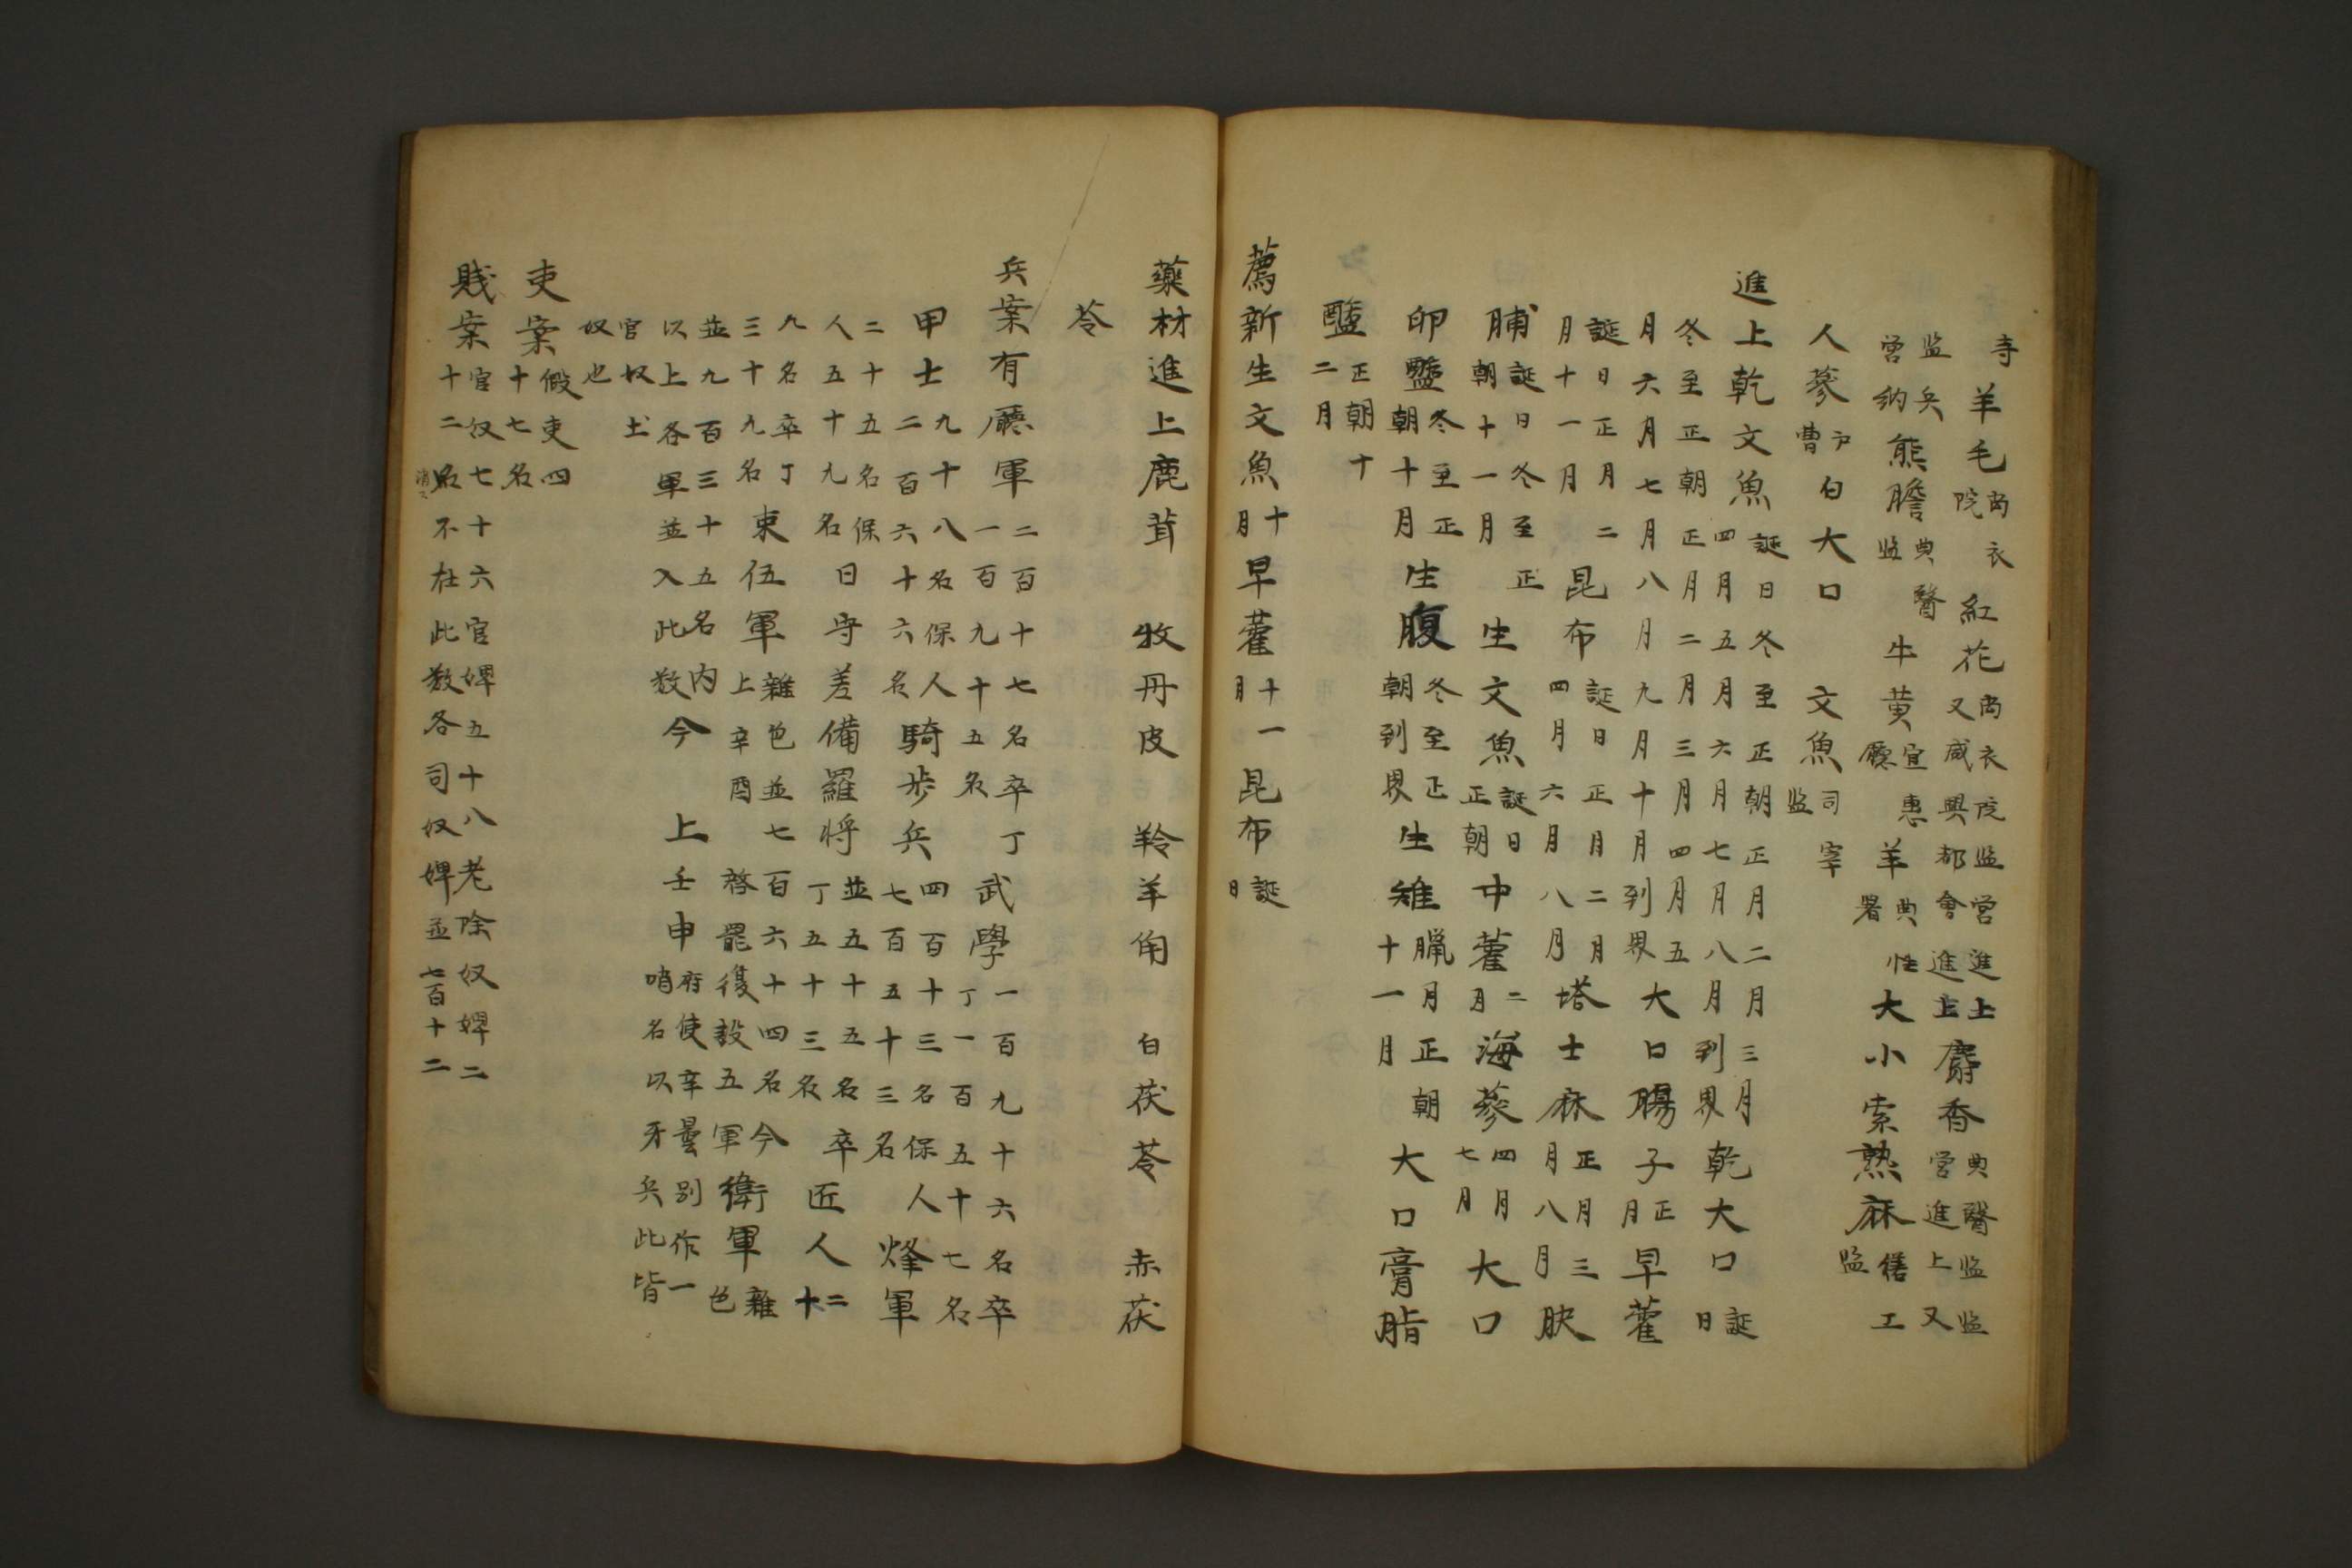 寺羊毛尚衣院紅花尚衣院監營進上又咸興都會進上麝香典醫監監營進上又
監兵營納熊膽典醫監牛黄宣惠廳羊典牲署大小索熟麻繕工監
人蔘戶曹白大口 文魚司宰監
進上乾文魚誕日冬至正朝正月二月三月四月五月六月七月八月到界乾大口誕日
冬至正朝正月二月三月四月五月六月七月八月九月十月到界大口腸子正月早藿
誕日正月二月十一月昆布誕日正月二月四月六月八月塔士麻正月三月八月腴
脯誕日冬至正朝十一月生文魚誕日正朝中藿二月海蔘四月七月大口
卵醢冬至正朝十月生腹冬至正朝到界生雉臘月正朝十一月大口膏脂
醢正朝十二月
薦新生文魚十月早藿十一月昆布誕日
藥材進上鹿茸 牧丹皮 羚羊角 白茯苓 赤茯
苓
兵案有廳軍二百十七名卒丁一百九十五名武學一百九十六名卒丁一百五十七名
甲士九十八名保人二百六十六名騎步兵四百十三名保人七百五十三名烽軍
二十五名保人五十九名日守差備羅將並五十五名卒丁五十三名匠人二十
九名卒丁三十九名束伍軍雜色並七百六十四名今上辛酉啓罷復設五軍衛軍雜色
並九百三十五名内以上各軍並入此数今上壬申府使辛曇別作一哨名以牙兵此皆
官奴土奴也
吏案假吏四十七名
賤案官奴七十六官婢五十八老除奴婢二十二名不在此数各司奴婢並七百十二